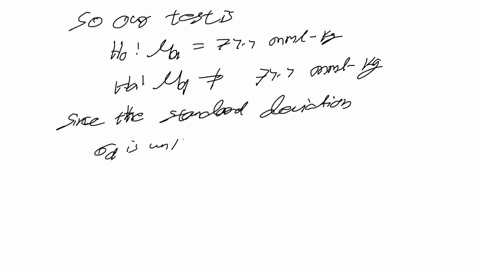 So our test is
H₀: μd = 77.7 mml-kg
Ha: μd ≠ 77.7 mml-kg
Since the standard deviation
σd is un